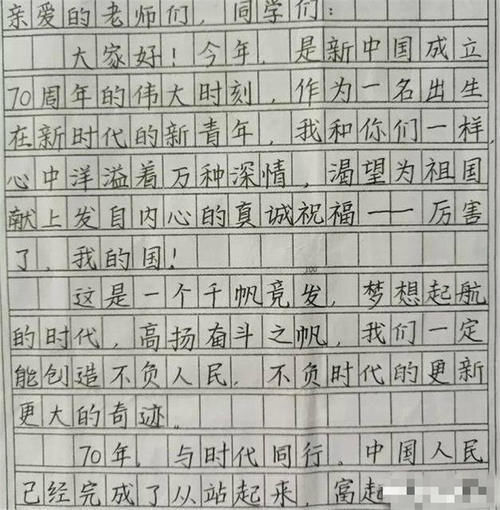 亲爱的老师们，同学们：
大家好！今年，是新中国成立
70周年的伟大时刻，作为一名出生
在新时代的新青年，我和你们一样，
心中洋溢着万种深情，渴望为祖国
献上发自内心的真诚祝福——厉害
了，我的国！
这是一个千帆竞发，梦想起航
的时代，高扬奋斗之帆，我们一定
能创造不负人民，不负时代的更新
更大的奇迹。
70年，与时代同行。中国人民
已经完成了从站起来，富起